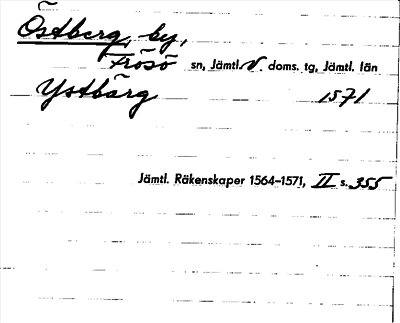 Östberg, by,
Frösö sn, Jämtl. V. doms. tg, Jämtl. län
Ystbärg 1571
Jämtl. Räkenskaper 1564-1571, II s. 355